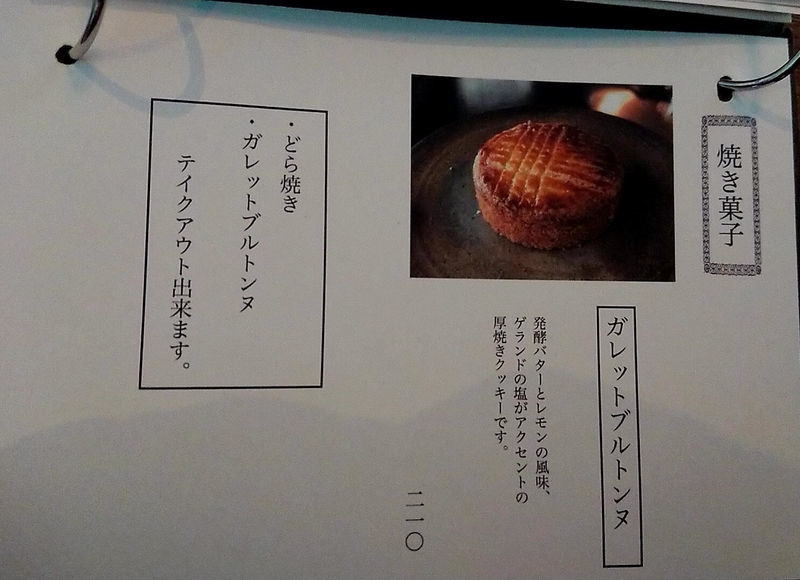 焼き菓子
ガレットブルトンヌ
発酵バターとレモンの風味、
ゲランドの塩がアクセントの
厚焼きクッキーです。
二一〇
・どら焼き
・ガレットブルトンヌ
テイクアウト出来ます。